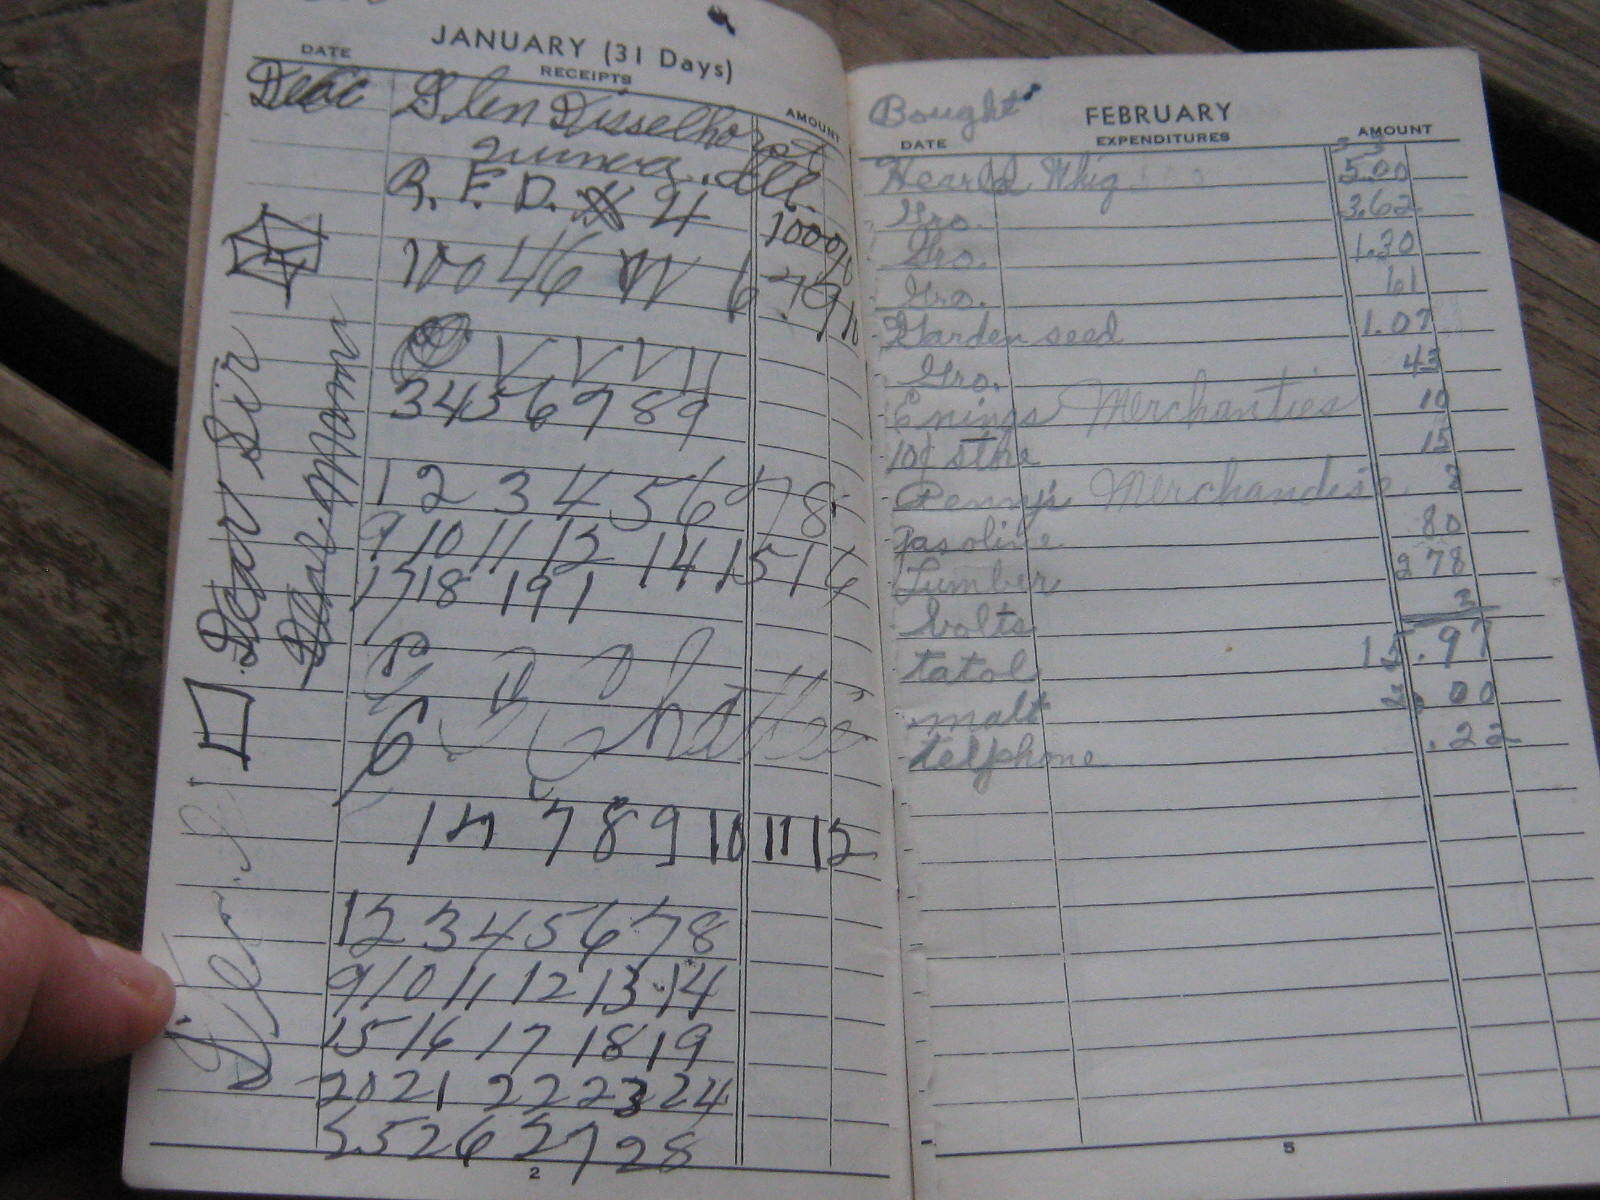 JANUARY (31 Days)
DATE RECEIPTS AMOUNT
Glen Disselhorst
Ill.
R. F. D. 4
100%
3 4 5 6 7 8 9
1 2 3 4 5 6 7 8
9 10 11 12 14 15 16
17 18 19 1
6
7 8 9 10 11 12
1 2 3 4 5 6 7 8
9 10 11 12 13 14
15 16 17 18 19
20 21 22 23 24
25 26 27 28
2
Dear Sir
Dear Mama
Bought
FEBRUARY
DATE EXPENDITURES AMOUNT
Hearld Whig 5.00
Gro. 3.62
Gro. 1.30
Gro. 61
Garden seed 1.07
Gro. 43
Enings Merchanties 10
10¢ store 15
Penny's Merchandise
Gasoline 80
Lumber 2 78
bolts 3
tatol 15.97
malt 2.00
telphone .22
5